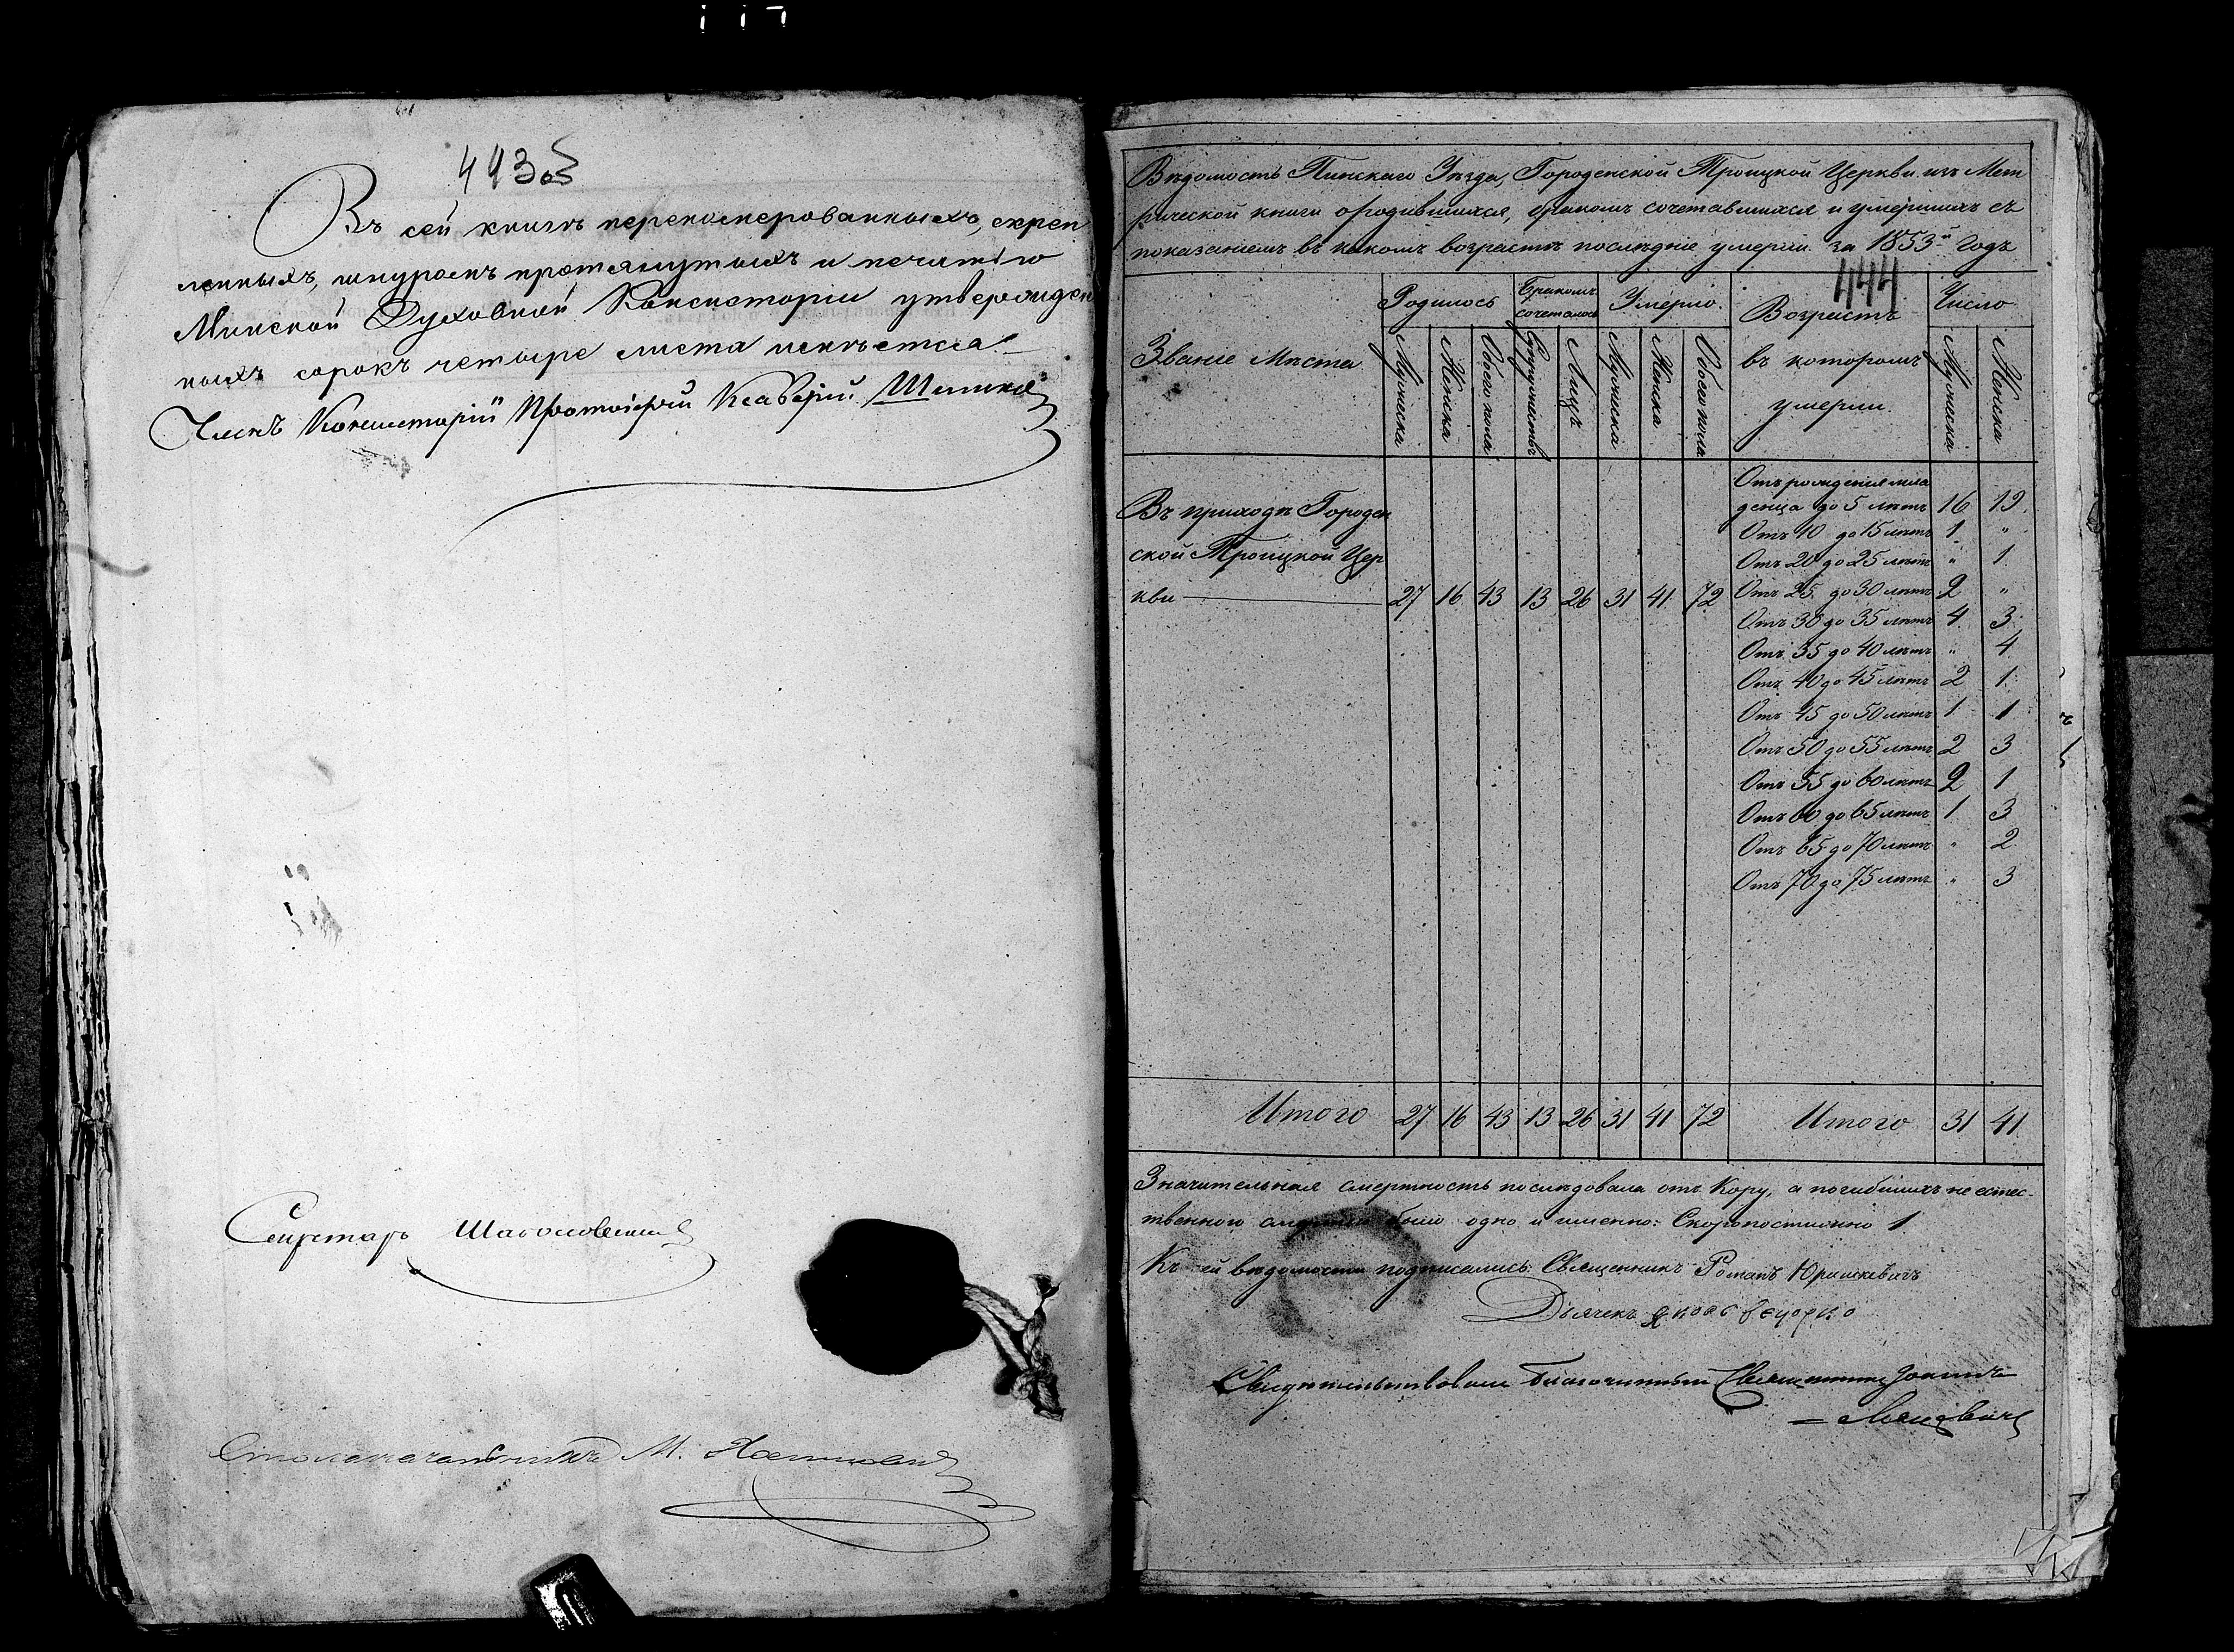 443об
Въ сей книгѣ перенумерованныхъ, скреп
ленныхъ, шнуромъ протянутыхъ и печатью
Минской Духовной Консисторіи утвержден
ныхъ сорокъ четыре листа имѣется.
Членъ Консисторіи Протоіерей Ксаверій
Секретарь
Столоначальникъ М.
Вѣдомость Пинскаго Уѣзда, Городенской Троицкой Церкви изъ Мет
рической книги о родившихся, бракомъ сочетавшихся и умершихъ съ
показаніемъ въ какомъ возрастѣ послѣдніе умерли за 1853й Годъ
444
Званіе Мѣста
Родилось
Бракомъ сочеталось
Умерло.
Возрастъ
въ которомъ
умерли.
Число
Мужеска
Женска
Обоего пола
Супружествъ
Лицъ
Мужеска
Женска
Обоего пола
Мужеска
Женска
Отъ рожденія мла
Въ приходѣ Городен денца до 5 лѣтъ 16 19.
Отъ 10 до 15 лѣтъ 1 "
ской Троицкой Цер Отъ 20 до 25 лѣтъ " 1
кви 27 16 43 13 26 31 41 72 Отъ 25 до 30 лѣтъ 2 "
Отъ 30 до 35 лѣтъ 4 3
Отъ 35 до 40 лѣтъ " 4
Отъ 40 до 45 лѣтъ 2 1
Отъ 45 до 50 лѣтъ 1 1
Отъ 50 до 55 лѣтъ 2 3
Отъ 55 до 60 лѣтъ 2 1
Отъ 60 до 65 лѣтъ 1 3
Отъ 65 до 70 лѣтъ " 2
Отъ 70 до 75 лѣтъ " 3
Итого 27 16 43 13 26 31 41 72 Итого 31 41
Значительная смертность послѣдовала отъ Кору, а погибшихъ не естес-
твенною смертію было одно и именно: Скоропостижно 1.
Къ сей вѣдомости подписались: Священникъ Романъ Юрашкевичъ
Дьячекъ
Свидѣтельствовалъ Благочинный Священникъ Іоаннъ